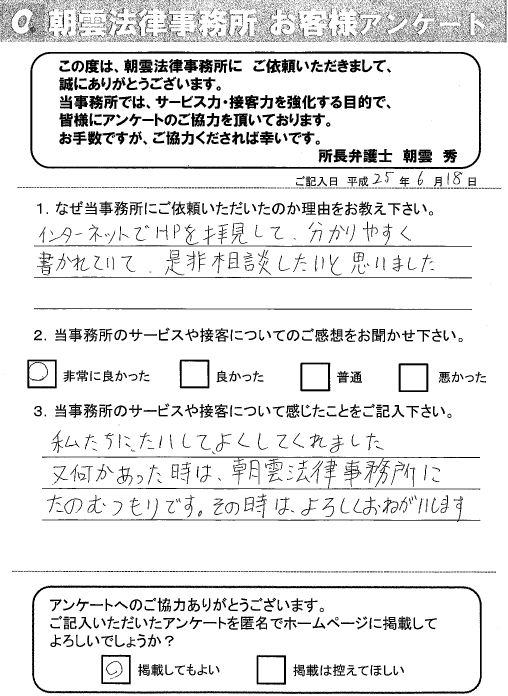 朝雲法律事務所 お客様アンケート
この度は、朝雲法律事務所に ご依頼いただきまして、
誠にありがとうございます。
当事務所では、サービス力・接客力を強化する目的で、
皆様にアンケートのご協力を頂いております。
お手数ですが、ご協力くだされば幸いです。
所長弁護士 朝雲 秀
ご記入日 平成 25 年 6 月 18 日
1. なぜ当事務所にご依頼いただいたのか理由をお教え下さい。
インターネットでHPを拝見して、分かりやすく
書かれていて、是非相談したいと思いました
2. 当事務所のサービスや接客についてのご感想をお聞かせ下さい。
○ 非常に良かった 良かった 普通 悪かった
3. 当事務所のサービスや接客について感じたことをご記入下さい。
私たちに、たいしてよくしてくれました
又何かあった時は、朝雲法律事務所に
たのむつもりです。その時は、よろしくおねがいします
アンケートへのご協力ありがとうございます。
ご記入いただいたアンケートを匿名でホームページに掲載して
よろしいでしょうか?
○ 掲載してもよい 掲載は控えてほしい